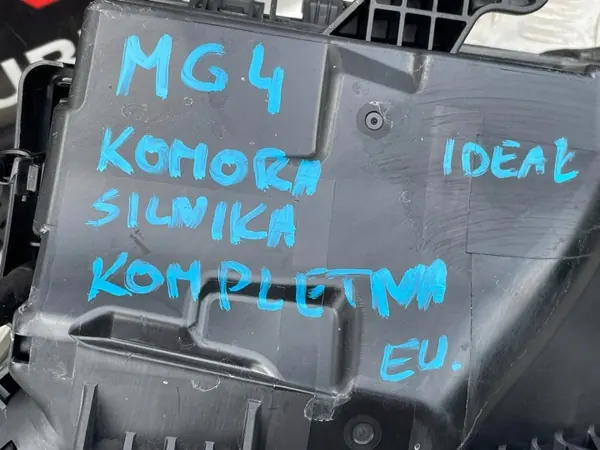 MG4
KOMORA IDEAŁ
SILNIKA
KOMPLETNA
EU.